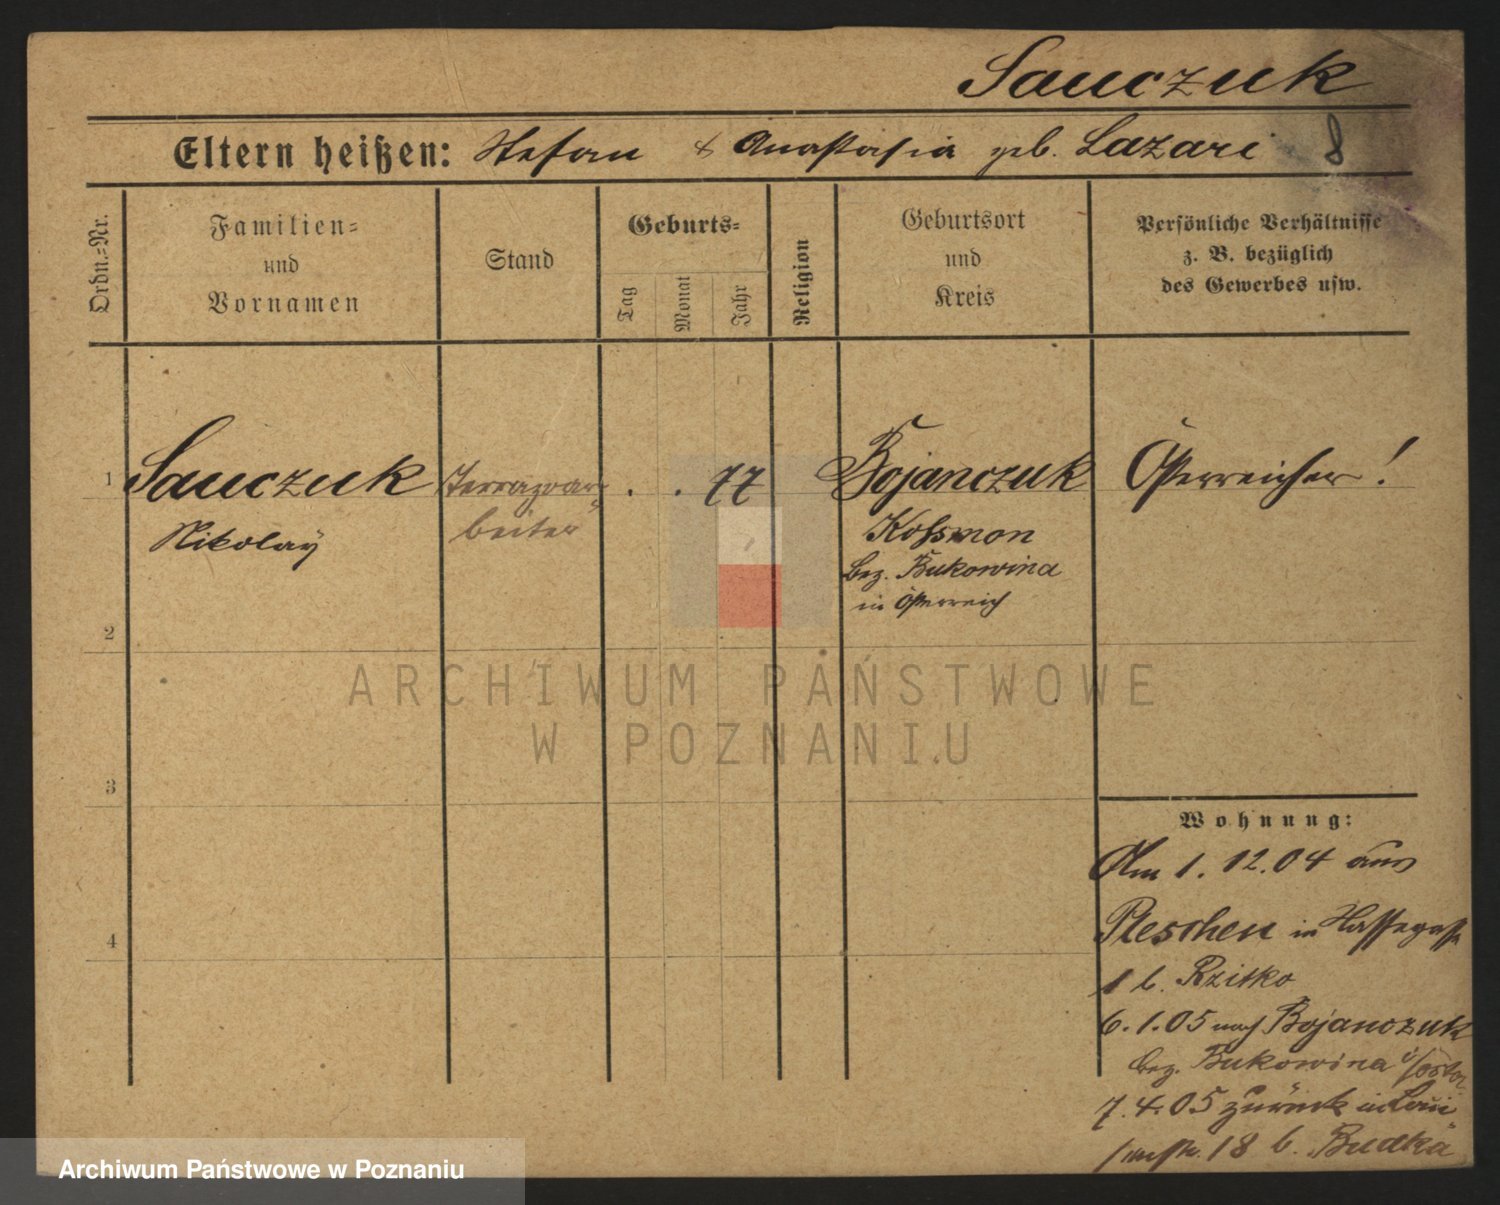 Sauczuk
Eltern heißen: Stefan & Anastasia geb. Lazari 8
Ordn.-Nr.
Familien-
und
Vornamen
Stand
Geburts-
Tag
Monat
Jahr
Religion
Geburtsort
und
Kreis
Persönliche Verhältnisse
z. B. bezüglich
des Gewerbes usw.
1 Sauczuk Terrazoar- . . 77 Bojanczuk Österreicher!
Nikolay beiter Kossmon
Bez. Bukowina
in Österreich
2
ARCHIWUM PAŃSTWOWE
W POZNANIU
3
Wohnung:
Am 1.12.04 aus
4
Pleschen in
1 b. Rzitko
6.1.05 nach Bojanczuk
Bez. Bukowina
7.4.05 zurück in Loui
senstr. 18 b. Budka
Archiwum Państwowe w Poznaniu